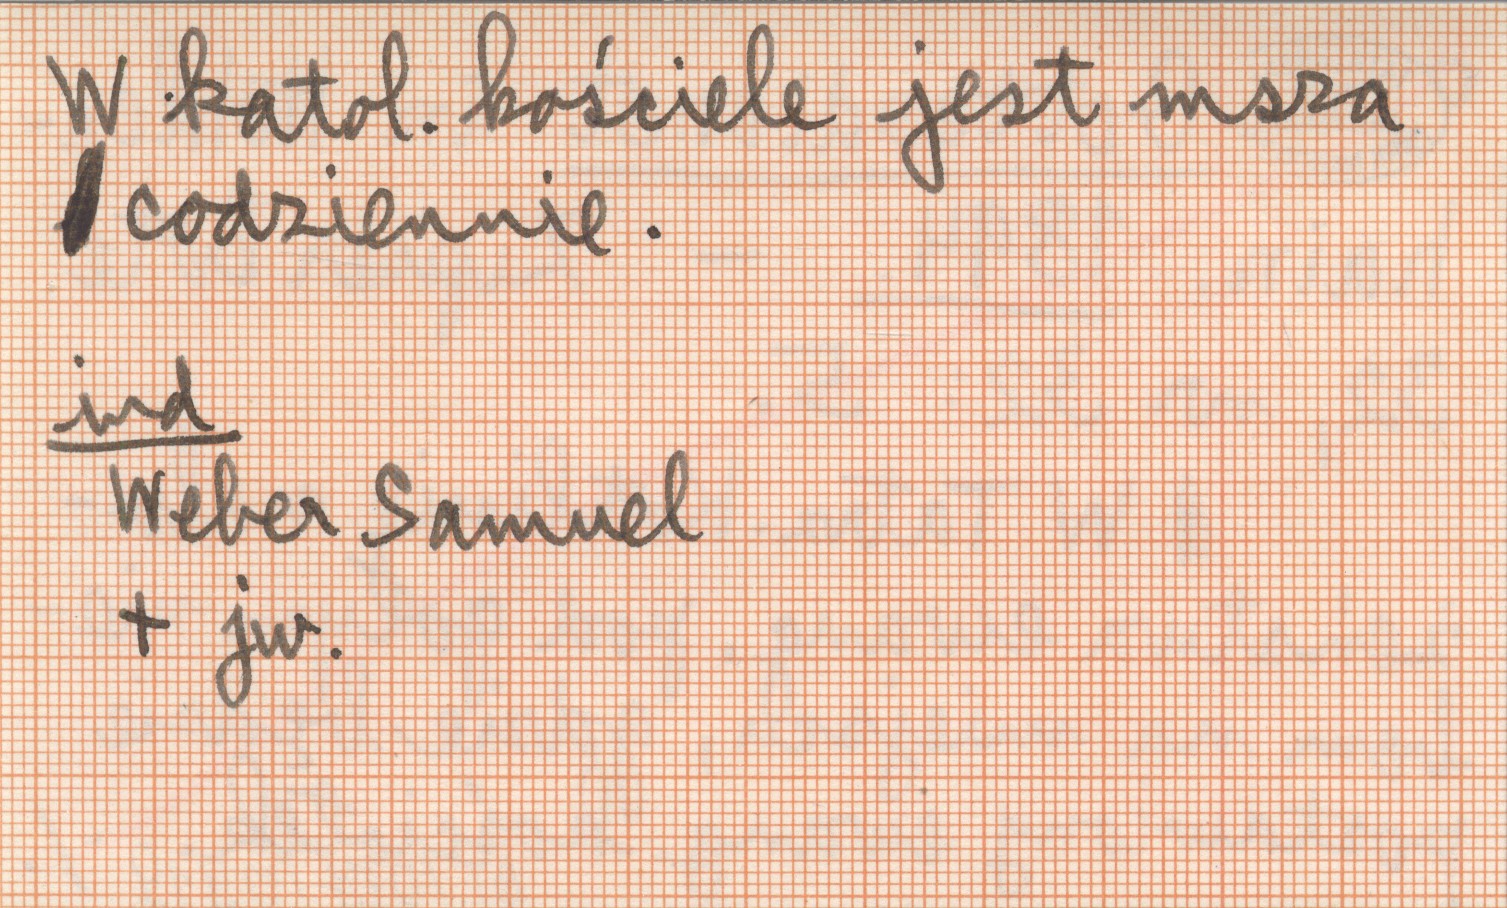 W katol. kościele jest msza
codziennie.
ind
Weber Samuel
+ jw.